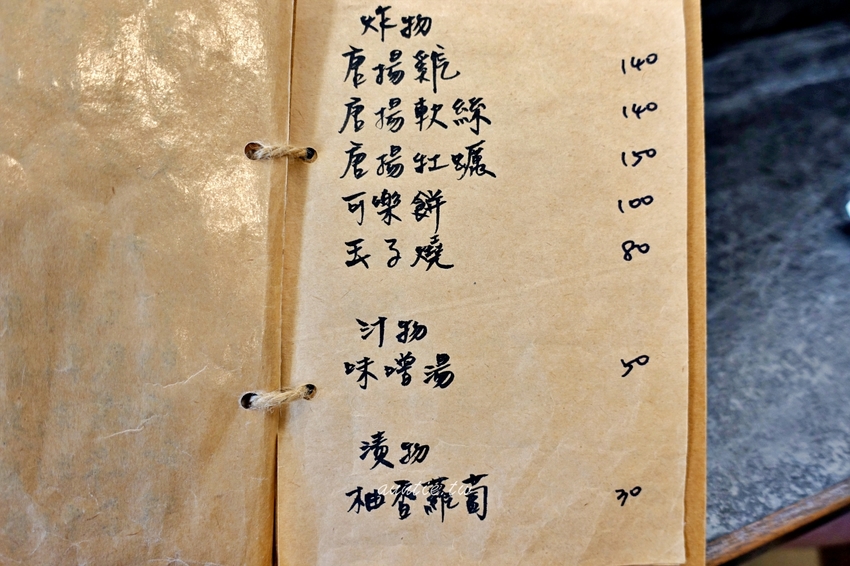 炸物
唐揚雞 140
唐揚軟絲 140
唐揚牡蠣 150
可樂餅 100
玉子燒 80
汁物
味噌湯 50
漬物
柚香蘿蔔 30